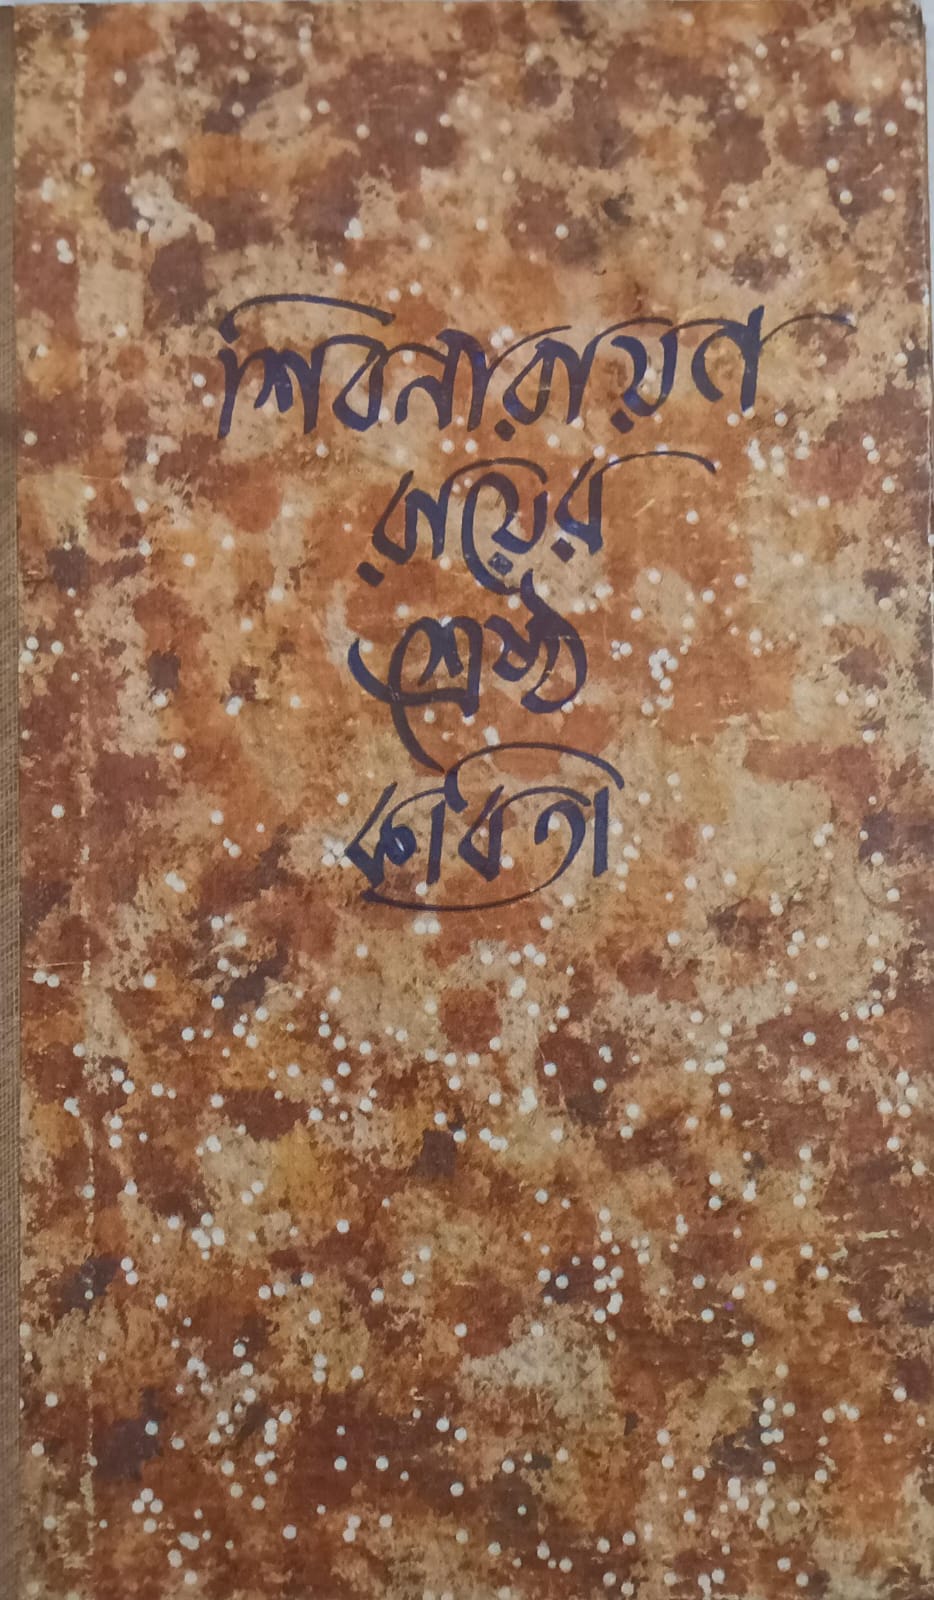 শিবনারায়ণ
রায়ের
শ্রেষ্ঠ
কবিতা